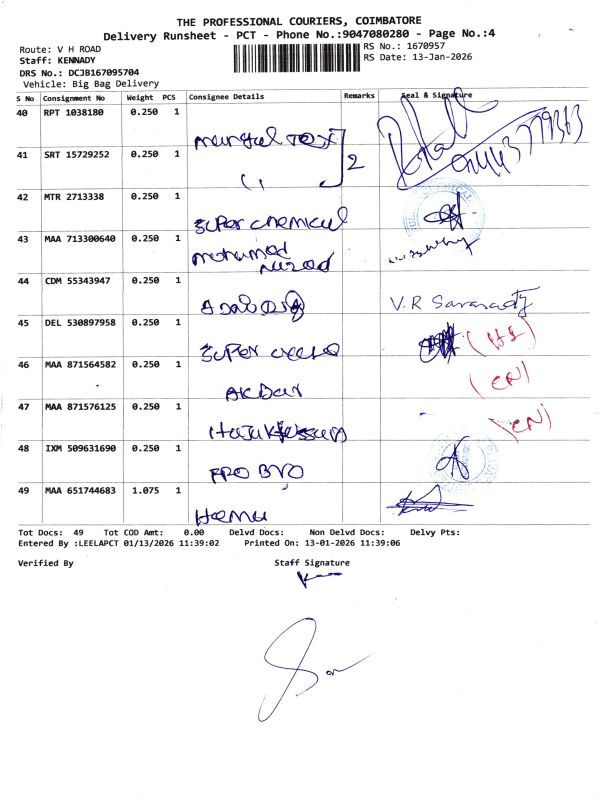 THE PROFESSIONAL COURIERS, COIMBATORE
Delivery Runsheet - PCT - Phone No.:9047080280 - Page No.:4
Route: V H ROAD
RS No.: 1670957
Staff: KENNADY
RS Date: 13-Jan-2026
DRS No.: DCJB167095704
Vehicle: Big Bag Delivery
S No Consignment No Weight PCS Consignee Details Remarks Seal & Signature
40 RPT 1038180 0.250 1
41 SRT 15729252 0.250 1 2
42 MTR 2713338 0.250 1 super chemical
43 MAA 713300640 0.250 1 mohamed
44 CDM 55343947 0.250 1 V.R
45 DEL 530897958 0.250 1 super
46 MAA 871564582 0.250 1 AKbar
47 MAA 871576125 0.250 1
48 IXM 509631690 0.250 1 PRO
49 MAA 651744683 1.075 1 Hema
Tot Docs: 49 Tot COD Amt: 0.00 Delvd Docs: Non Delvd Docs: Delvy Pts:
Entered By :LEELAPCT 01/13/2026 11:39:02 Printed On: 13-01-2026 11:39:06
Verified By Staff Signature